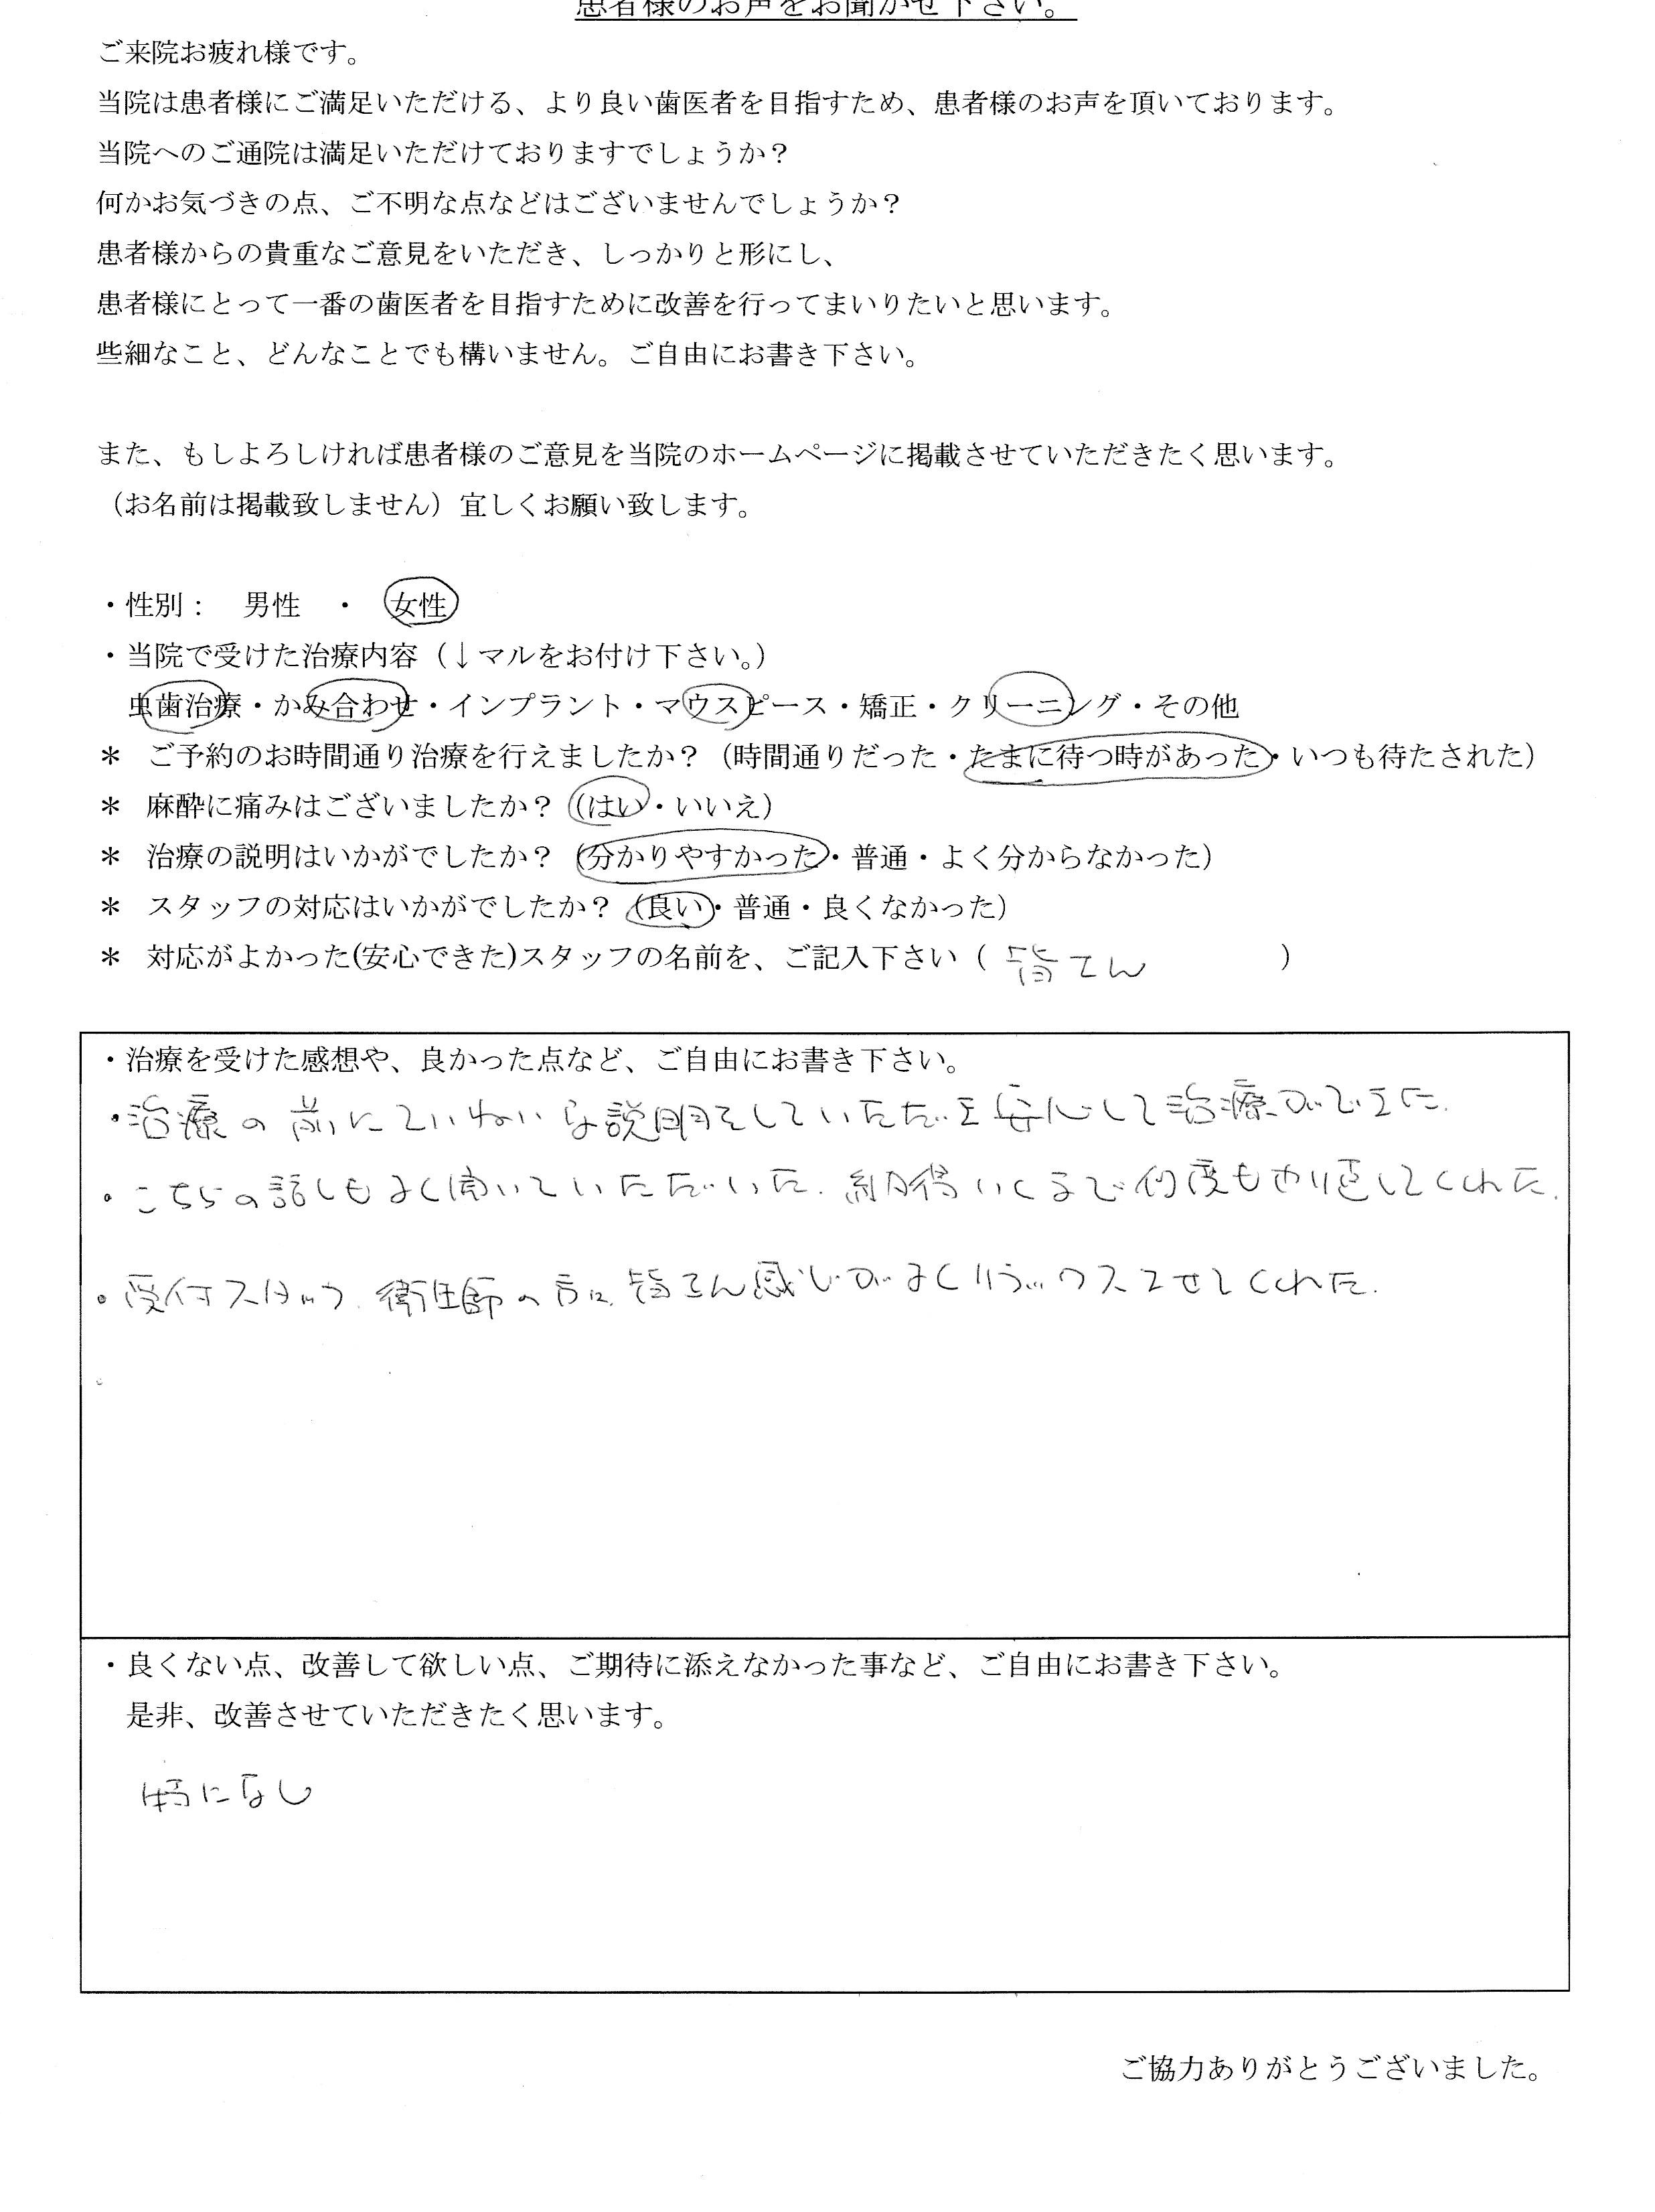 患者様のお声をお聞かせ下さい。
ご来院お疲れ様です。
当院は患者様にご満足いただける、より良い歯医者を目指すため、患者様のお声を頂いております。
当院へのご通院は満足いただけておりますでしょうか？
何かお気づきの点、ご不明な点などはございませんでしょうか？
患者様からの貴重なご意見をいただき、しっかりと形にし、
患者様にとって一番の歯医者を目指すために改善を行ってまいりたいと思います。
些細なこと、どんなことでも構いません。ご自由にお書き下さい。
また、もしよろしければ患者様のご意見を当院のホームページに掲載させていただきたく思います。
（お名前は掲載致しません）宜しくお願い致します。
・性別： 男性 ・ 女性
・当院で受けた治療内容（↓マルをお付け下さい。）
虫歯治療・かみ合わせ・インプラント・マウスピース・矯正・クリーニング・その他
＊ ご予約のお時間通り治療を行えましたか？（時間通りだった・たまに待つ時があった・いつも待たされた）
＊ 麻酔に痛みはございましたか？（はい・いいえ）
＊ 治療の説明はいかがでしたか？（分かりやすかった・普通・よく分からなかった）
＊ スタッフの対応はいかがでしたか？（良い・普通・良くなかった）
＊ 対応がよかった(安心できた)スタッフの名前を、ご記入下さい（ 皆さん ）
・治療を受けた感想や、良かった点など、ご自由にお書き下さい。
・治療の前にていねいな説明をしていただき安心して治療ができた.
・こちらの話しもよく聞いていただいた. 納得いくまで何度もやり直してくれた.
・受付スタッフ. 衛生師の方は. 皆さん感じがよくリラックスさせてくれた.
・良くない点、改善して欲しい点、ご期待に添えなかった事など、ご自由にお書き下さい。
是非、改善させていただきたく思います。
特になし
ご協力ありがとうございました。